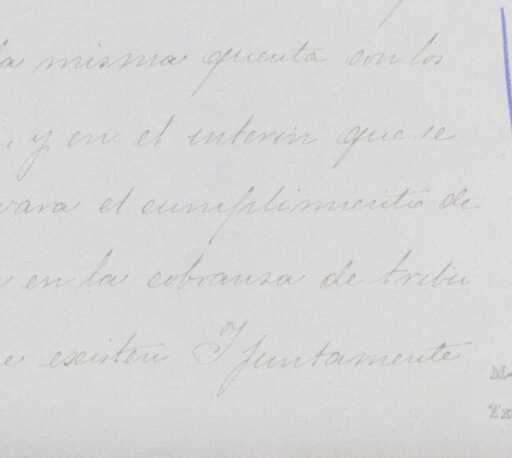 la misma quenta con los
, y en el interin que se
vara el cumplimiento de
en la cobransa de tribu
e existen Y juntamente